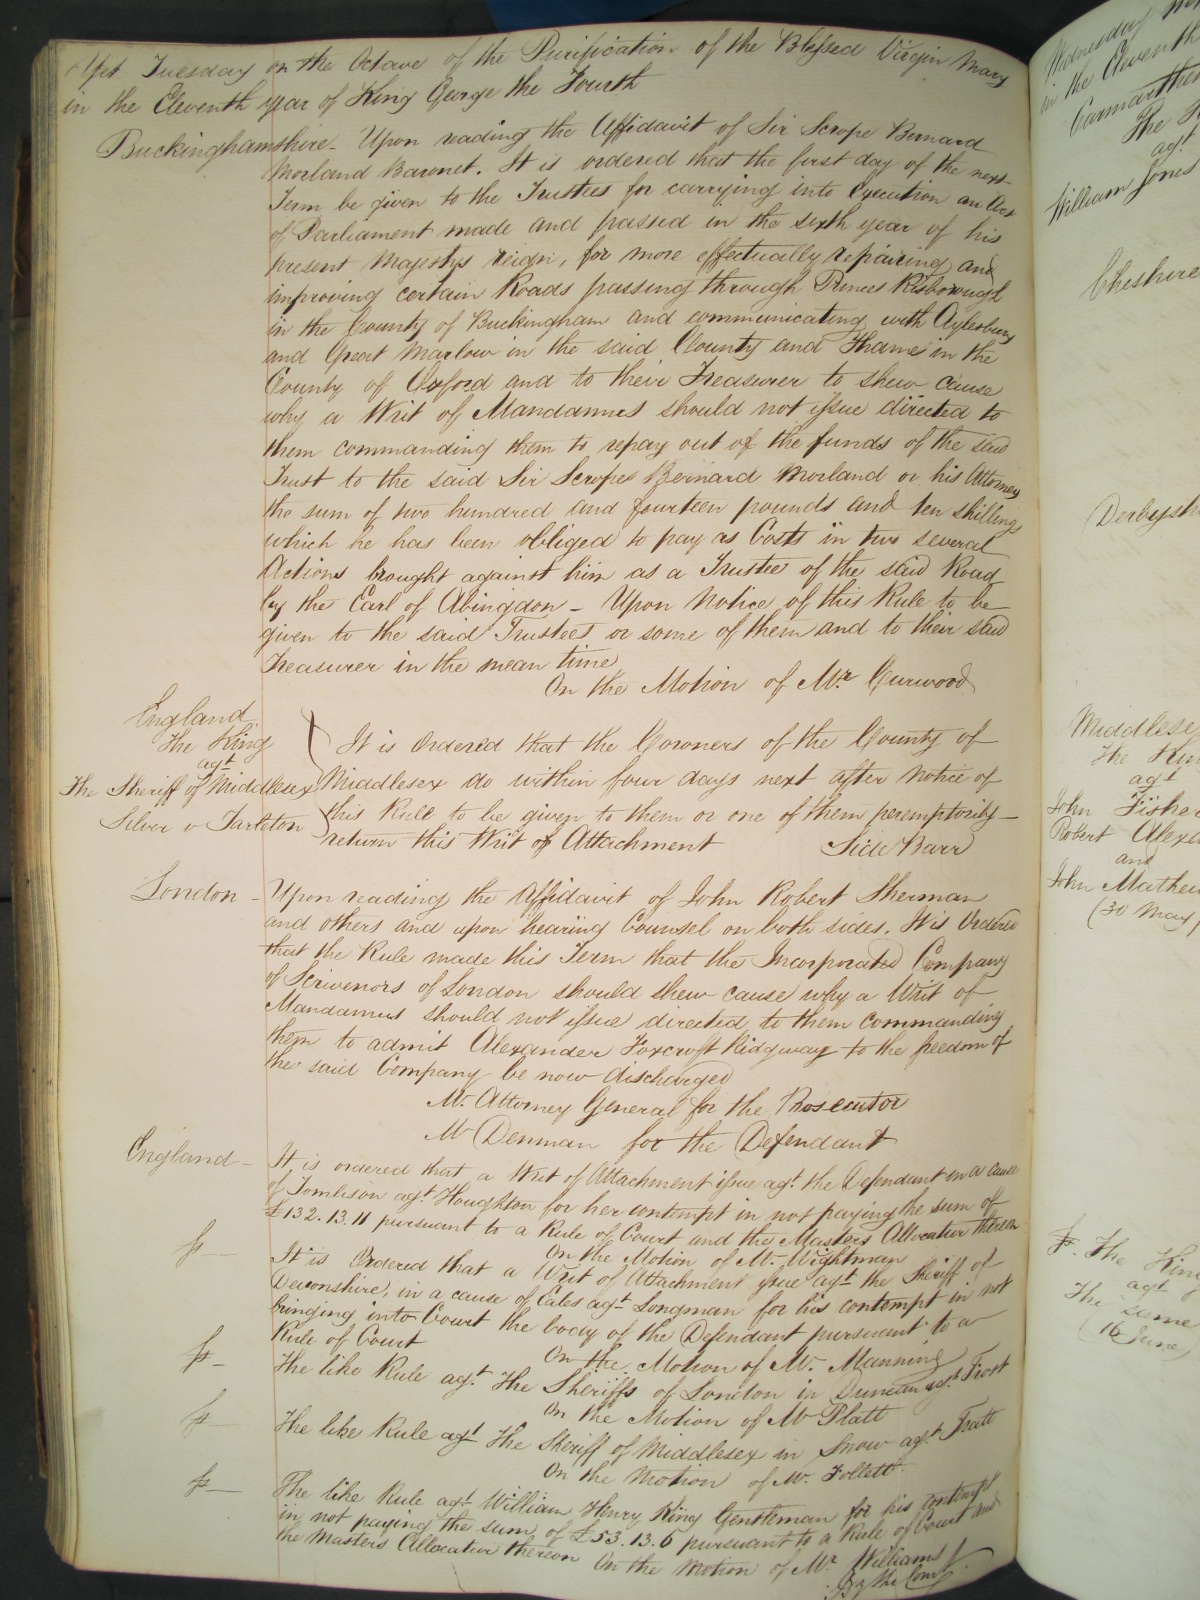 Yet Tuesday on the Octave of the Purification of the Blessed Virgin Mary
in the Eleventh year of King George the Fourth
Buckinghamshire - Upon reading the Affidavit of Sir Scrope Bernard
Morland Baronet. It is ordered that the first day of the next
Term be given to the Trustees for carrying into Execution an Act
of Parliament made and passed in the sixth year of his
present Majestys reign, for more effectually repairing and
improving certain Roads passing through Princes Risborough
in the County of Buckingham and communicating with Aylesbury
and Great Marlow in the said County and Thame in the
County of Oxford and to their Treasurer to shew cause
why a Writ of Mandamus should not issue directed to
them commanding them to repay out of the funds of the said
Trust to the said Sir Scrope Bernard Morland or his Attorney
the sum of two hundred and fourteen pounds and ten shillings
which he has been obliged to pay as Costs in two several
Actions brought against him as a Trustee of the said Road
by the Earl of Abingdon - Upon Notice of this Rule to be
given to the said Trustees or some of them and to their said
Treasurer in the mean time
On the Motion of Mr. Gurwood
England
The King
agt
The Sheriff of Middlesex
Silver v Tarleton
It is Ordered that the Coroners of the County of
Middlesex do within four days next after Notice of
this Rule to be given to them or one of them peremptorily
return this Writ of Attachment
Side Barr
London - Upon reading the Affidavit of John Robert Sherman
and others and upon hearing Counsel on both sides. It is Ordered
that the Rule made this Term that the Incorporated Company
of Scrivenors of London should shew cause why a Writ of
Mandamus should not issue directed to them commanding
them to admit Alexander Foxcroft Ridgway to the freedom of
the said Company be now discharged
Mr. Attorney General for the Prosecutor
Mr Denman for the Defendant
England - It is ordered that a Writ of Attachment issue agt. the Defendant in a cause
of Tomlison agt. Houghton for her contempt in not paying the sum of
£132.13.11 pursuant to a Rule of Court and the Masters Allocatur thereon
On the Motion of Mr. Wightman
It is Ordered that a Writ of Attachment issue agt. the Sheriff of
Devonshire, in a cause of Cales agt. Longman for his contempt in not
bringing into Court the body of the Defendant pursuant to a
Rule of Court
On the Motion of Mr. Manning
The like Rule agt. The Sheriffs of London in Duncan agt. Frost
On the Motion of Mr Platt
The like Rule agt The Sheriff of Middlesex in Snow agt.
On the Motion of Mr. Follett
The like Rule agt. William Henry King Gentleman for his contempt
in not paying the sum of £53.13.6 pursuant to a Rule of Court and
the Masters Allocatur thereon
On the Motion of Mr. Williams
By the Court
Wednesday
in the Eleventh
Carmarthen
The
agt
William Jones
Cheshire
Derbysh
Middlese
The Kin
agt
John Fisher
Robert
and
John Mathew
(30 May
The King
agt
The same
(16 June)